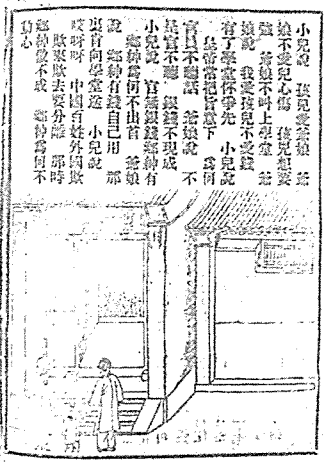 小兒說　孩兒愛爺娘　爺
娘不愛兒心傷　孩兒想要
強　爺娘不叫上學堂　爺
娘說　我愛孩兒不愛錢
有了學堂你爭先　小兒說
皇帝當把旨意下　為何
官員不聽話　爺娘說　不
是官不聽　銀錢不現成
小兒說　官無銀錢鄉紳有
鄉紳為何不出首　爺娘
說　鄉紳有錢自己用　那
裏肯向學堂送　小兒說
哎呀呀　中國百姓外國欺
欺來欺去要分離　那時
鄉紳做不成　鄉紳為何不
動心